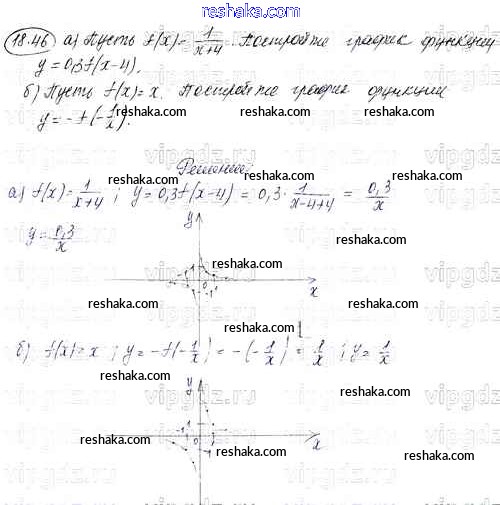 www.reshaka.com
18.46 а) Пусть f(x)=1/(x+4). Постройте график функции
y=0,3f(x-4).
б) Пусть f(x)=x. Постройте график функции
y=-f(-1/x).
reshaka.com reshaka.com
Решение:
reshaka.com reshaka.com
а) f(x)=1/(x+4); y=0,3f(x-4)=0,3·1/(x-4+4)=0,3/x
reshaka.com reshaka.com
y=0,3/x
y
reshaka.com
-1 1 0 1 -1
x
reshaka.com reshaka.com
reshaka.com
б) f(x)=x; y=-f(-1/x)=-(-1/x)=1/x; y=1/x
reshaka.com
y
reshaka.com
reshaka.com
-1 1 0
x
reshaka.com reshaka.com